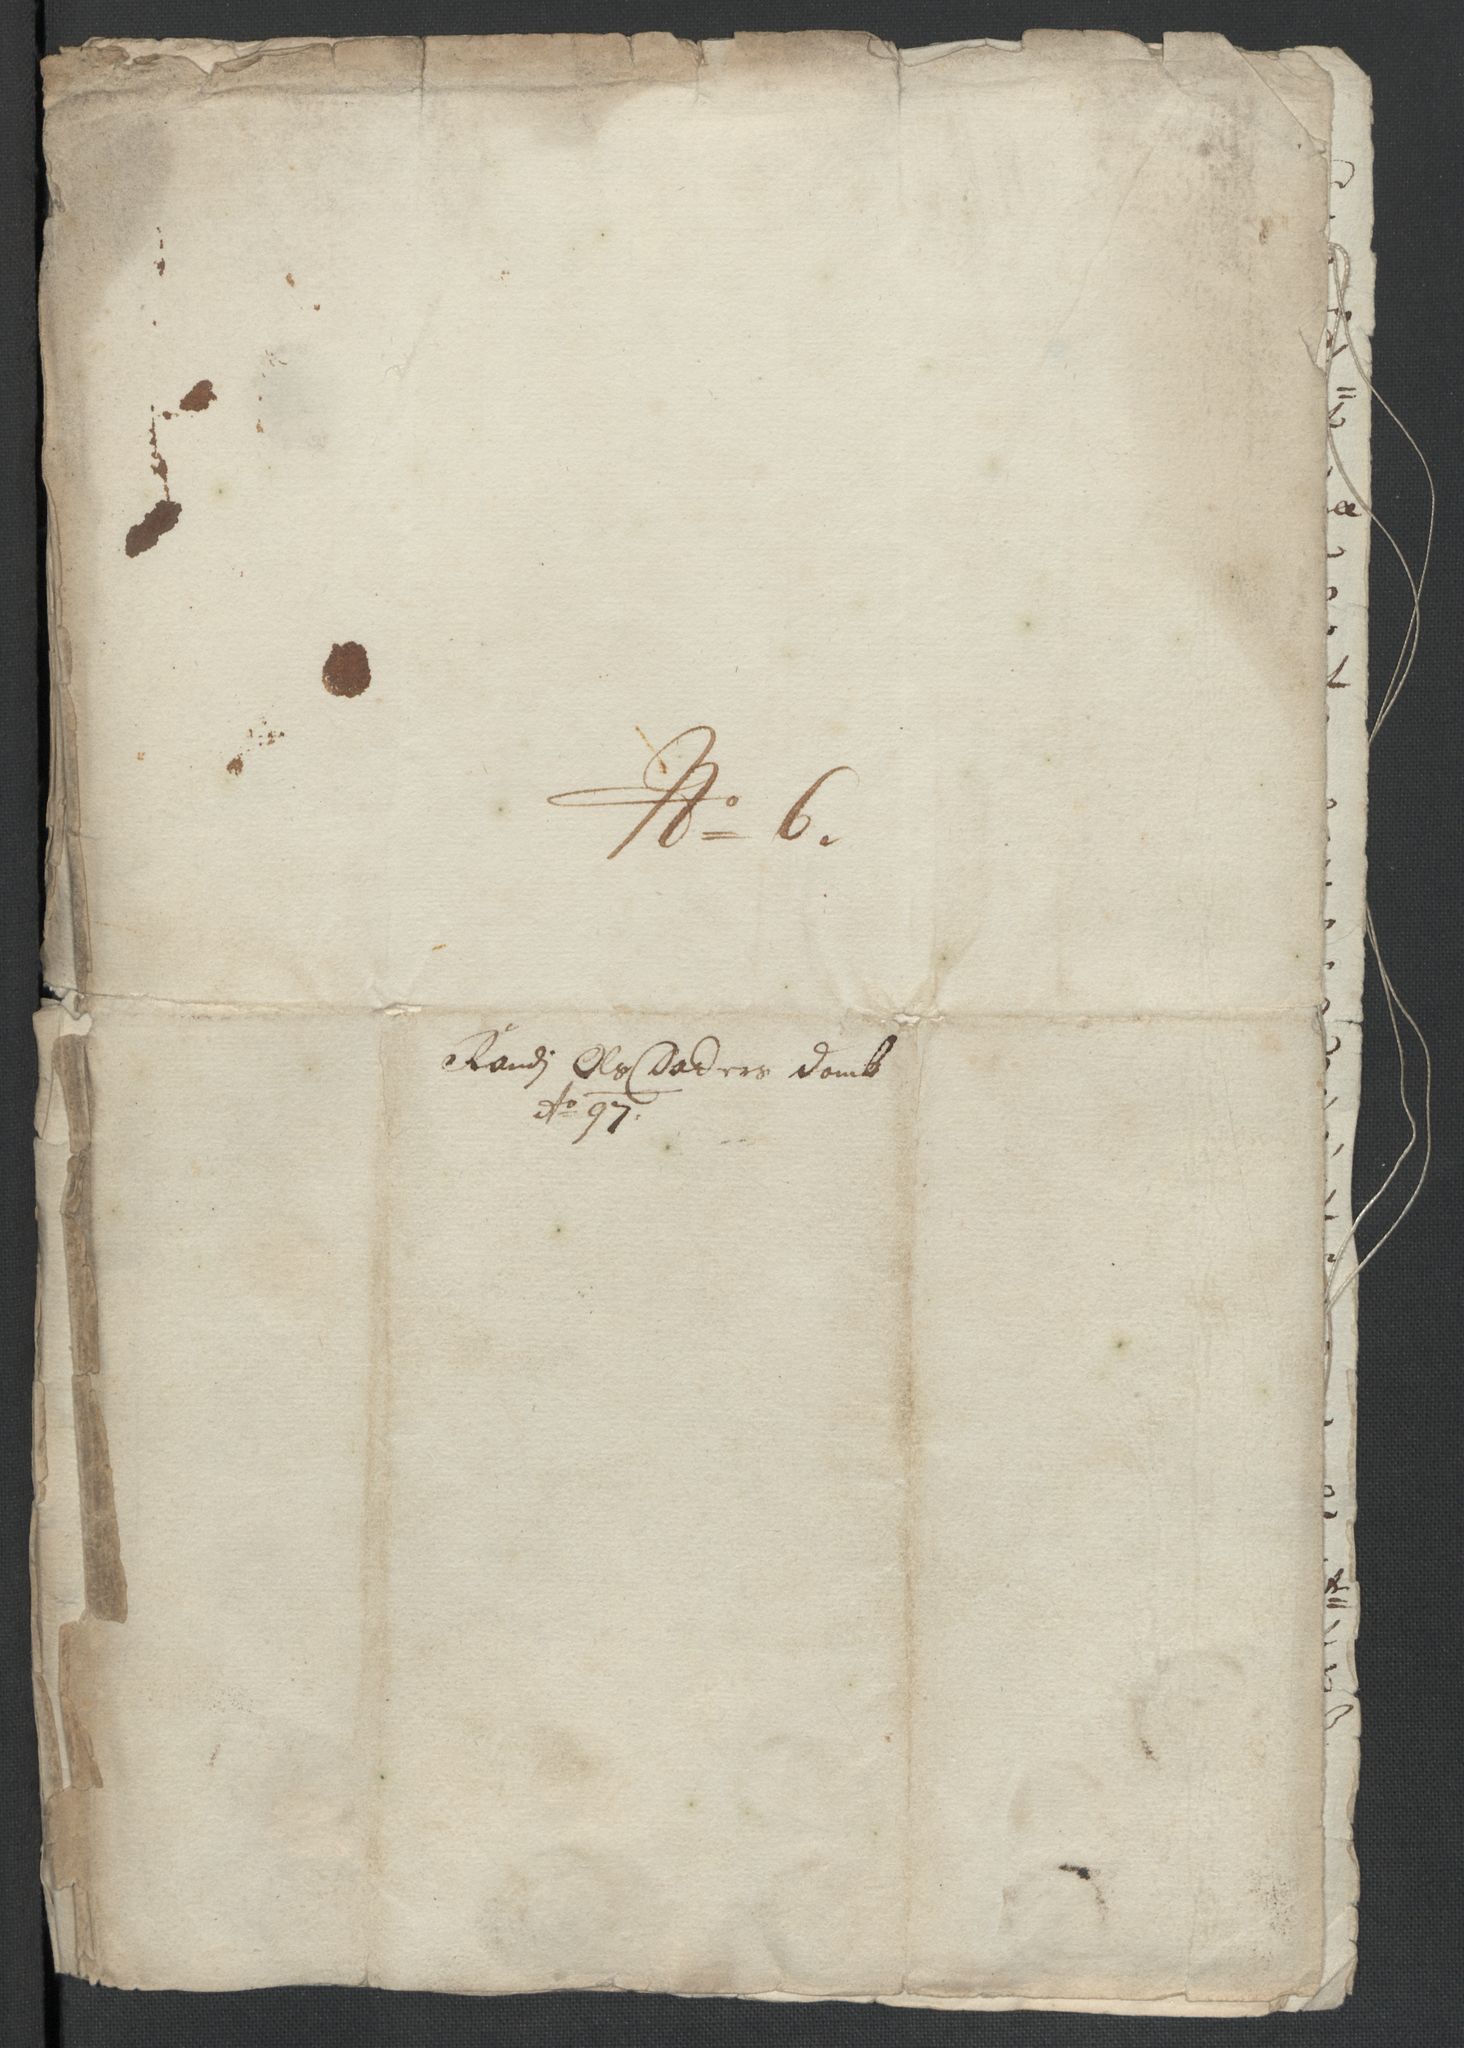 No 6.
Randj Olsdaters domb
Ao 97.